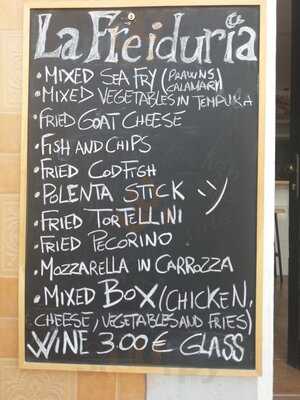 La Freiduria
• MIXED SEA FRY (PRAWNS,
CALAMARY)
• MIXED VEGETABLES IN TEMPURA
• FRIED GOAT CHEESE
• FISH AND CHIPS
• FRIED CODFISH
• POLENTA STICK
• FRIED TORTELLINI
• FRIED PECORINO
• MOZZARELLA IN CARROZZA
• MIXED BOX (CHICKEN,
CHEESE, VEGETABLES AND FRIES)
WINE 3.00 € GLASS